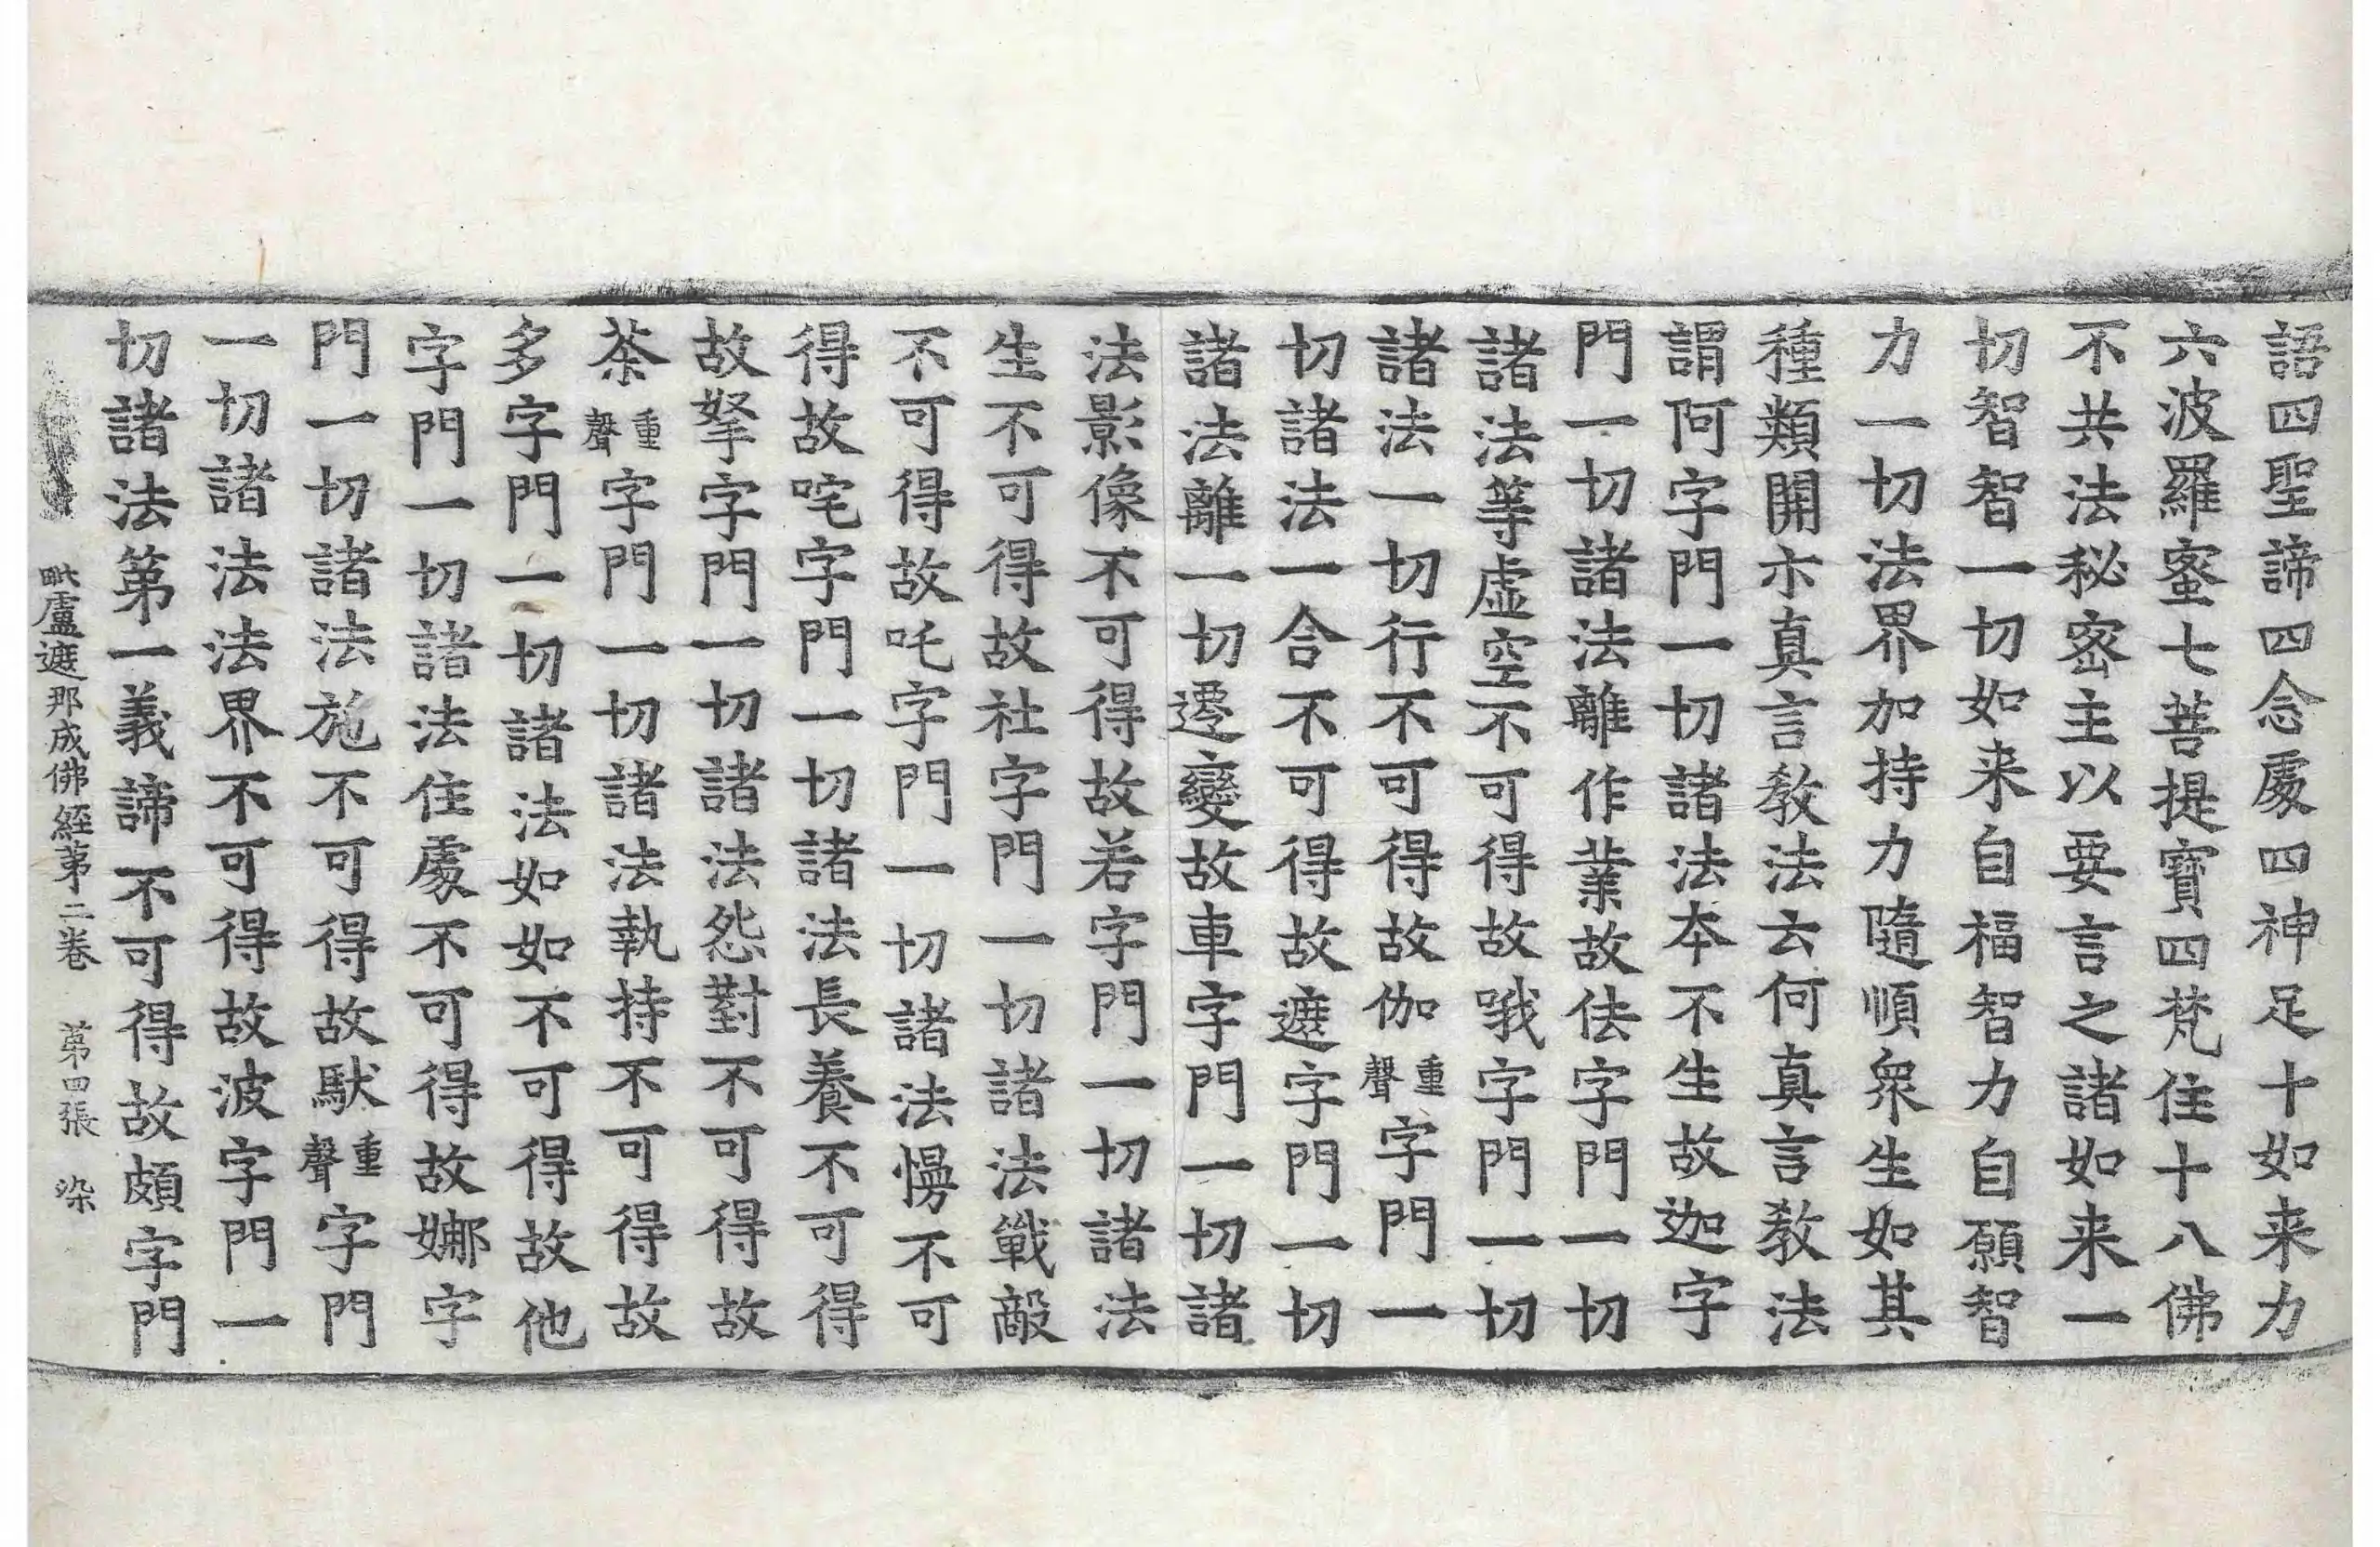 語四聖諦四念處四神足十如来力
六波羅蜜七菩提寶四梵住十八佛
不共法秘密主以要言之諸如来一
切智智一切如来自福智力自願智
力一切法界加持力隨順衆生如其
種類開示真言教法云何真言教法
謂阿字門一切諸法本不生故迦字
門一切諸法離作業故佉字門一切
諸法等虛空不可得故哦字門一切
諸法一切行不可得故伽重聲字門一
切諸法一合不可得故遮字門一切
諸法離一切遷變故車字門一切諸
法影像不可得故若字門一切諸法
生不可得故社字門一切諸法戰敵
不可得故吒字門一切諸法慢不可
得故咤字門一切諸法長養不可得
故拏字門一切諸法怨對不可得故
茶重聲字門一切諸法執持不可得故
多字門一切諸法如如不可得故他
字門一切諸法住處不可得故娜字
門一切諸法施不可得故馱重聲字門
一切諸法法界不可得故波字門一
切諸法第一義諦不可得故頗字門
毗盧遮那成佛經第二卷 第四張 染